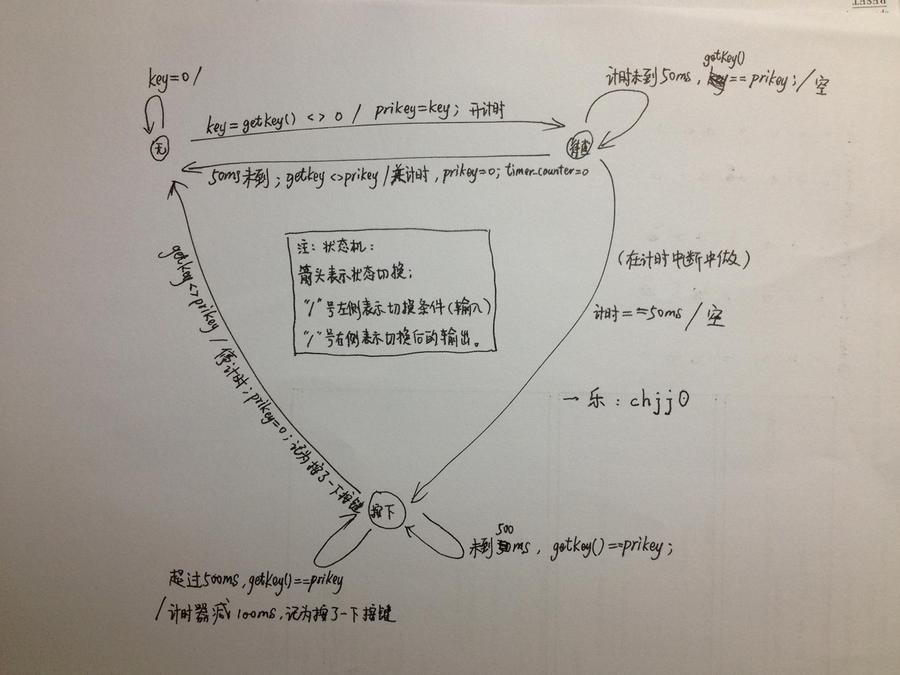 key=0/
getkey()
计时未到50ms, == prikey; /空
key=getkey() <> 0 / prikey=key; 开计时
无
50ms未到; getkey<>prikey /计时, prikey=0; timer_counter=0
注: 状态机:
箭头表示状态切换;
"/"号左侧表示切换条件(输入)
"/"号右侧表示切换后的输出。
(在计时中断中做)
计时==50ms /空
getkey<>prikey /停计时; prikey=0; 记为按了一下按键
一乐: chjj0
按下
500
未到ms, getkey()==prikey;
超过500ms, getkey()==prikey
/计时器减100ms, 记为按了一下按键